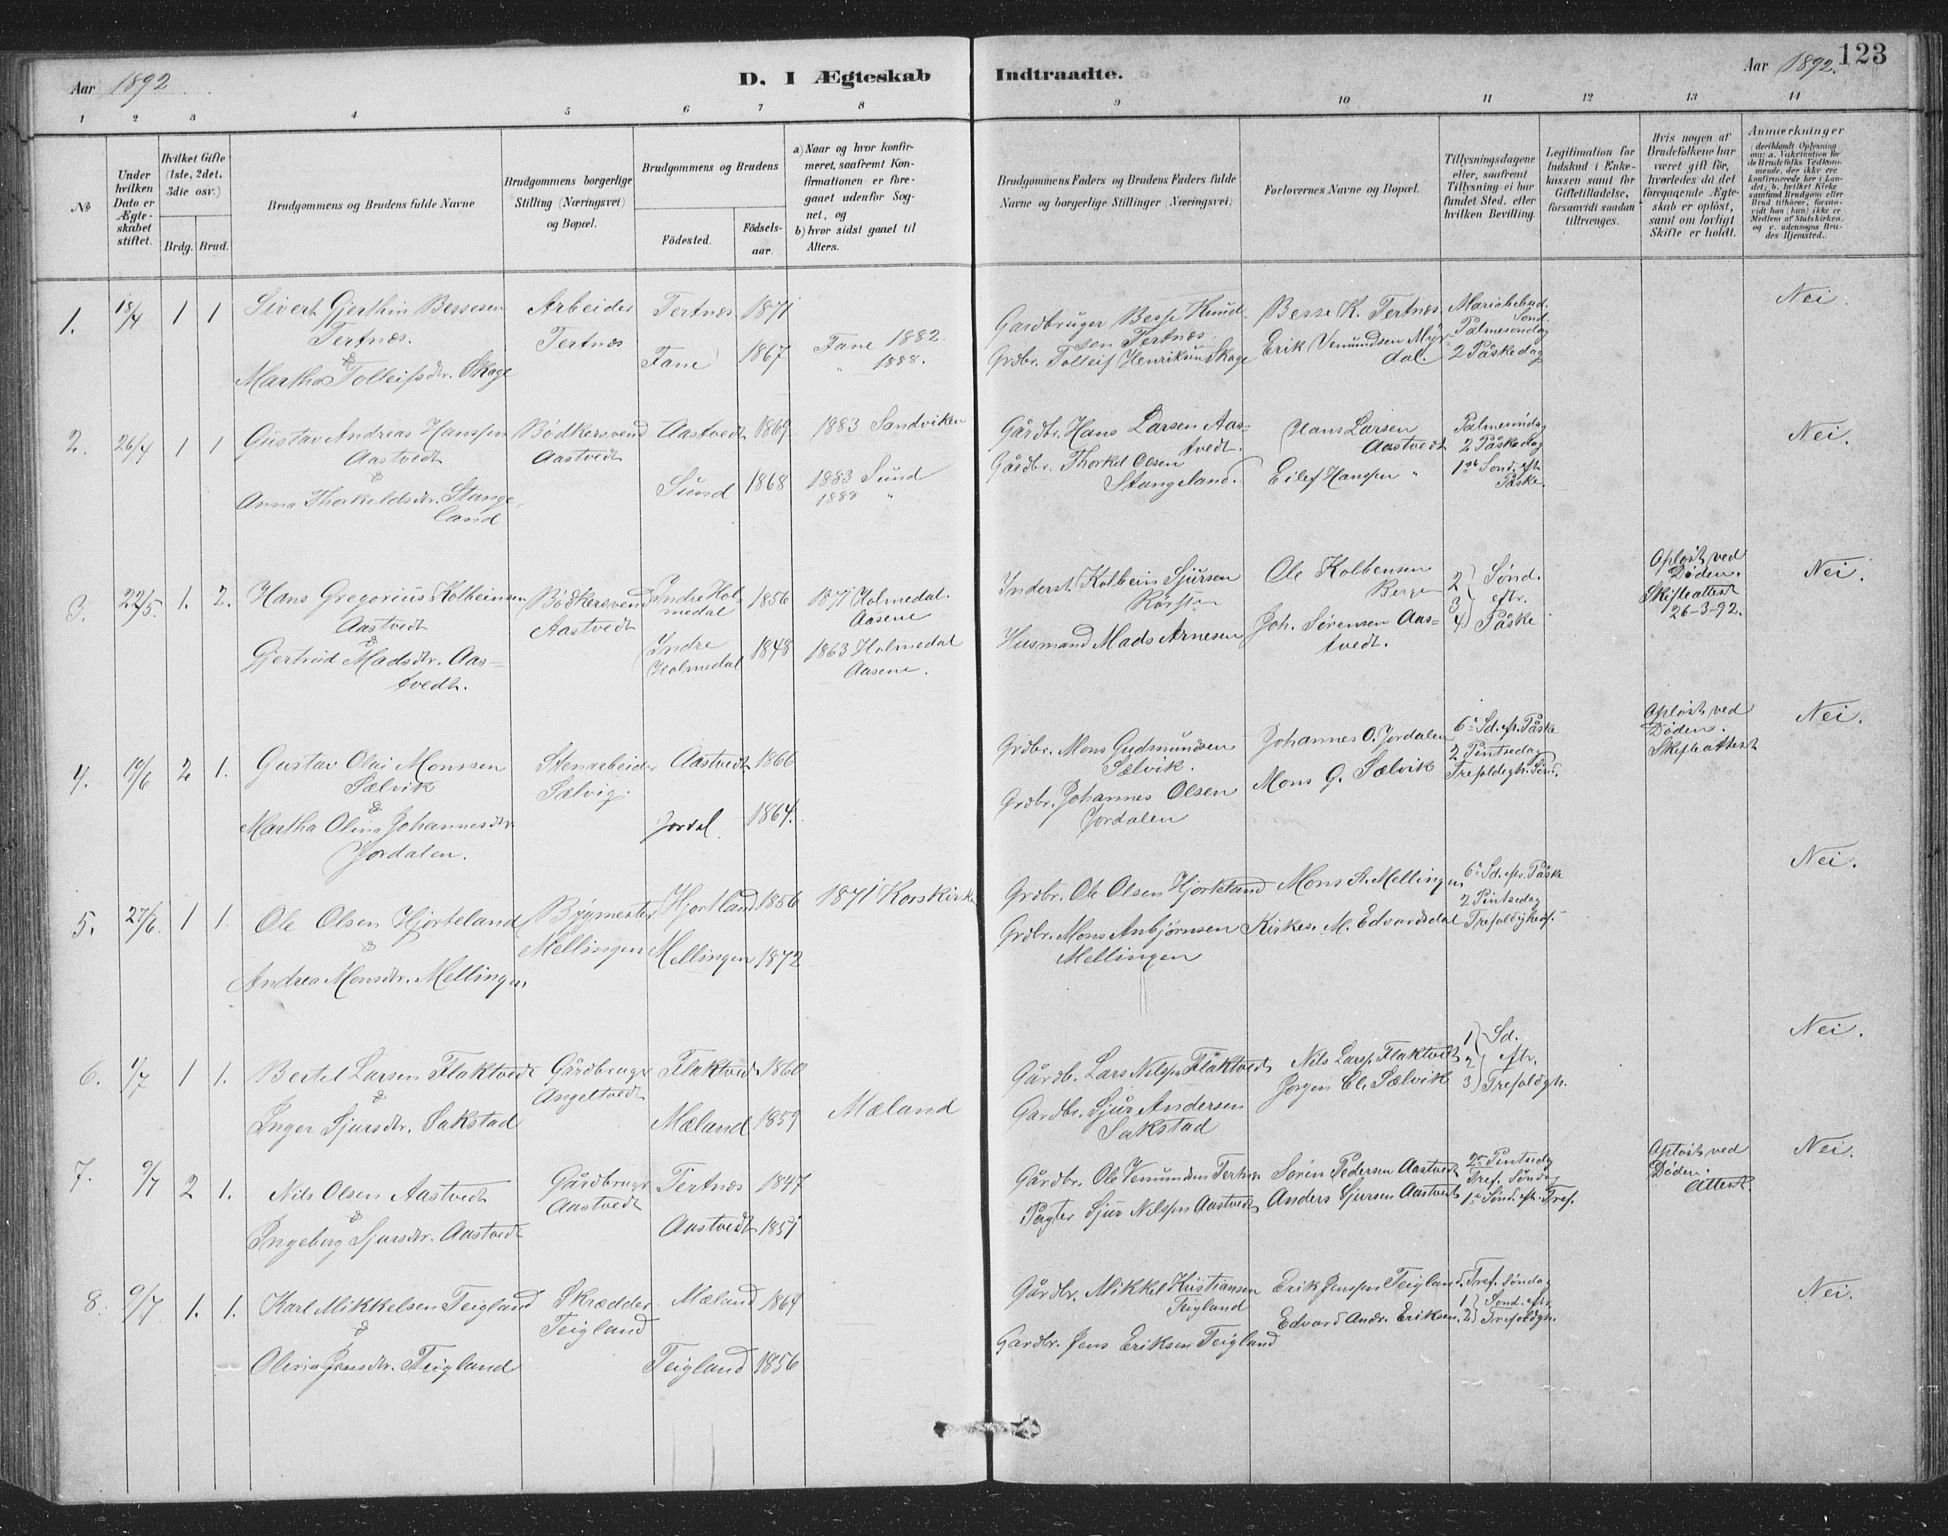 Aar 1892
D. I Ægteskab
Indtraadte.
Aar 1892.
123
1 2 3 4 5 6 7 8 9 10 11 12 13 14
No
Under hvilken Dato er Ægteskabet stiftet.
Hvilket Gifte (1ste, 2det, 3die osv.)
Brdg. Brud.
Brudgommens og Brudens fulde Navne
Brudgommens borgerlige Stilling (Næringsvei) og Bopæl.
Brudgommens og Brudens
Födested.
Födselsaar.
a) Naar og hvor konfirmeret, saafremt Konfirmationen er foregaaet udenfor Sognet, og
b) hvor sidst gaaet til Alters.
Brudgommens Faders og Brudens Faders fulde Navne og borgerlige Stillinger (Næringsvei).
Forlovernes Navne og Bopæl.
Tillysningsdagene eller, saafremt Tillysning ei har fundet Sted, efter hvilken Bevilling.
Legitimation for Indskud i Enkekassen samt for Giftetilladelse, forsaavidt saadan tiltrænges.
Hvis nogen af Brudefolkene har været gift før, hvorledes da det foregaaende Ægteskab er opløst, samt om lovligt Skifte er holdt.
Anmærkninger
(deriblandt Oplysning om: a. Vakcination for de Brudefolks Vedkommende, der ikke ere konfirmerede her i Landet; b. hvilket Kirkesamfund Brudgom eller Brud tilhører, forsaavidt han (hun) ikke er Medlem af Statskirken, og c. udensogns Brudes Hjemsted.)
1. 18/4 1 1 Sivert Gjerthin Bessesen Arbeider Tertnæs 1871
Tertnæs. Tertnæs
&
Martha Tolleifsdr. Skage Fane 1867 Fane 1882.
" 1888.
Gardbruger Besse Knudsen Tertnæs
Grdbr. Tolleif Henriksen Skage
Besse K. Tertnæs
Erik Vemundsen Myrdal.
Mariabebud. Sønd.
Palmesøndag
2 Påskedag
Nei.
2. 26/4 1 1 Gustav Andreas Hanssen Bødkersvend Aastvedt 1869. 1883 Sandviken
Aastvedt Aastvedt
&
Anna Thorkeldsdr. Stangeland Sund 1868 1883 Sund
1883 "
Gårdbr. Hans Larsen Aastvedt.
Gårdbr. Thorkel Olsen Stangeland.
Hans Larsen Aastvedt
Eilef Hanssen "
Palmesøndag
2 Påskedag
1ste Sønd. eft. Påske.
Nei.
3. 22/5. 1. 2. Hans Gregorius Kolbeinsen Bødkersvend Indre Holmedal 1856 1871 Holmedal.
Aastvedt Aastvedt Aasene
&
Gjertrud Madsdr. Aastvedt. Indre Holmedal 1848 1863 Holmedal
Aasene.
Inderst Kolbein Sjursen
Husmand Mads Arnesen
Ole Kolbensen Berge
Joh. Sørensen Aastvedt.
2 Sønd.
3 eftr.
4 Påske
Opløst ved Døden.
Skifteattest 26-3-92.
Nei.
4. 19/6 2 1. Gustav Olai Monssen Stenarbeider Aastvedt 1866
Sælvik Sælvig.
&
Martha Olina Johannesdr. Jordal. 1864.
Jordalen.
Grdbr. Mons Gudmundsen Sælvik.
Grdbr. Johannes Olsen Jordalen
Johannes O. Jordalen
Mons G. Sælvik
6te Sd. eft. Påske
2 Pintsedag
Trefoldigh. Sønd.
Opløst ved Døden.
Skifteattest
Nei.
5. 27/6. 1 1. Ole Olsen Hjorteland Bygmester Hjortland 1856 1871 Korskirke
& Mellingen
Andrea Monsdr. Mellingen Mellingen 1872
Grdbr. Ole Olsen Hjorteland
Grdbr. Mons Anbjørnsen Mellingen
Mons A. Mellingen
Kirkes. M. Edvardsdal
6te Sd. eft. Påske
2 Pintsedag
Trefoldigheds.
Nei.
6. 1/7 1 1. Bertel Larsen Flaktvedt Gårdbruger Flaktvedt 1860
& Angeltvedt
Inger Sjursdr. Sakstad Mæland 1859 Mæland
Gårdb. Lars Nilssen Flåktvedt
Gardbr. Sjur Andersen Sakstad
Nils Larss. Flaktvedt
Jørgen Cl. Sælvik
1 Sd.
2 eftr.
3 Trefoldgh.
Nei.
7. 9/7 2 1. Nils Olsen Aastvedt Gårdbruger Tertnæs 1847
& Aastvedt
Ingeborg Sjursdr. Aastvedt Aastvedt 1851
Gårdbr. Ole Vemundsen Tertnæs
Pagter Sjur Nilssen Aastvedt
Søren Pedersen Aastvedt
Anders Sjursen Aastvedt
2en Pintsedag
Tref. Søndag
1e Sønd. eft. Tref.
Opløst ved Døden.
Attest
Nei.
8. 9/7 1. 1. Karl Mikkelsen Teigland Skrædder Mæland 1864
& Teigland
Olina Jensdr. Teigland Teigland 1856
Gårdbr. Mikkel Kristiansen Teigland
Gardbr. Jens Eriksen Teigland
Erik Jenssen Teigland.
Edvard Andr. Eriksen.
Tref. Søndag
1 Sønd. eft.
2 Trefoldgh.
Nei.